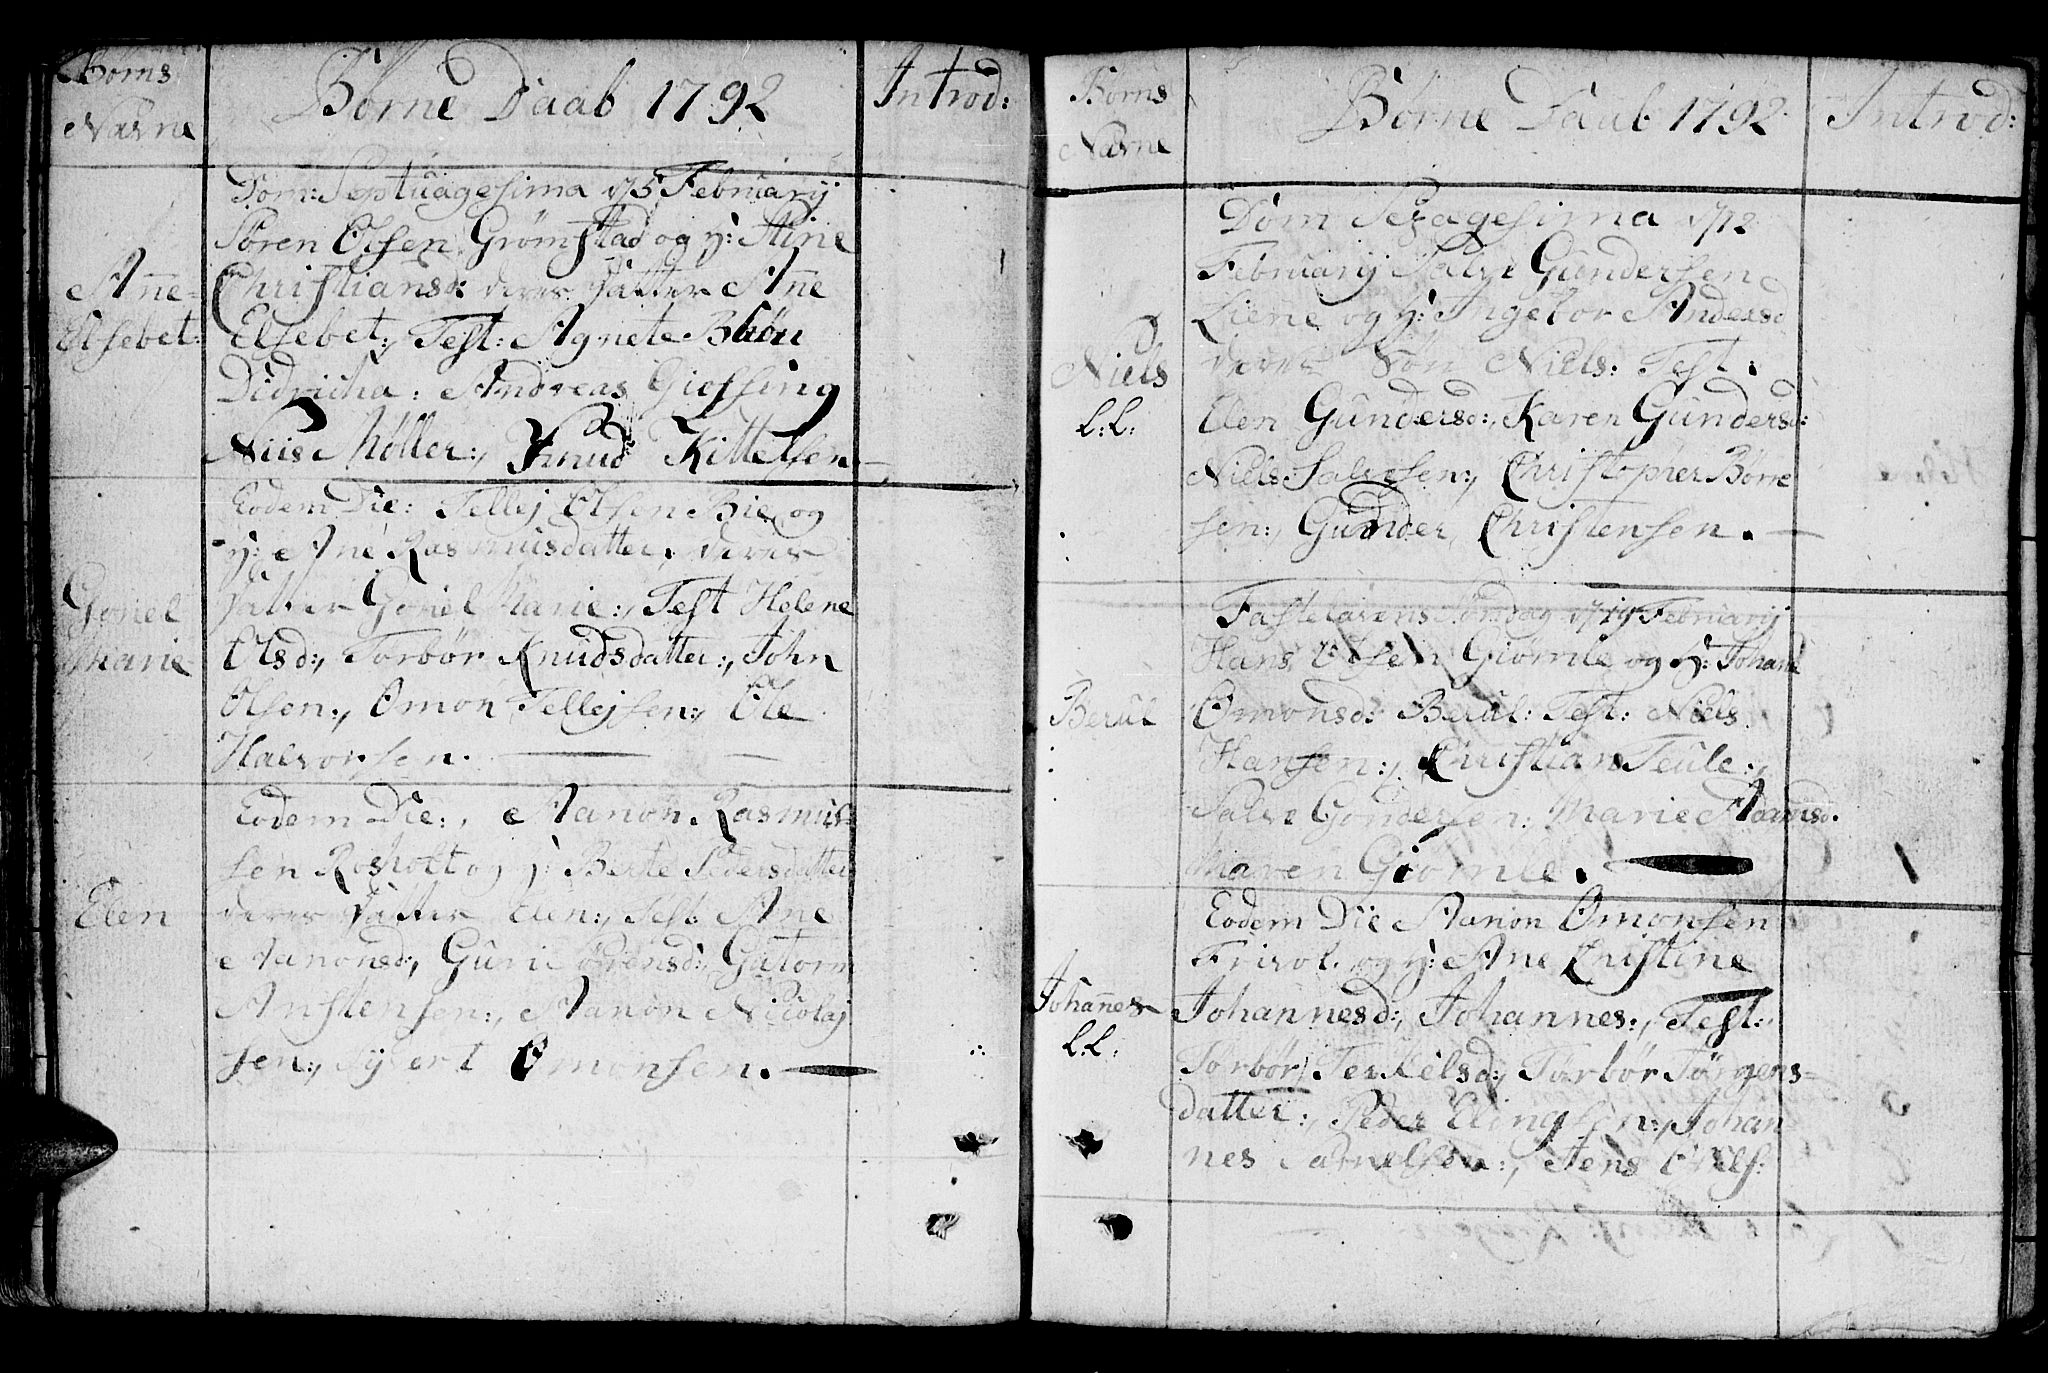 Børns
Navne
Børne Daab 1792
Introd:
Dom: Septuagesima d 5 Februarij
Søren Olsen Grømstad og h: Stine
Christiansd: deres Datter Ane
Elsebet:, Test: Agnete Bhøn
Anne-
Elsebet:
Didricha: Andreas Giessing
Niis Møller:, Knud Kittelsen
Eodem Die: Tellej Olsen Bie og
h: Ane Rasmusdatter, deres
Datter Gonel Marie:, Test Helene
Gonel
Marie
Olsd:, Torbør Knudsdatter:, John
Olsen:, Omon Tellejsen:, Ole
Halvorsen.
Eodem Die:, Aanon Rasmus-
sen Rosholt og h: Berte Pedersdatter
Elen
deres Datter Elen:, Test: Ane
Aanonsd:, Guri Sørensd:, Gutorm
Anstensen:, Aanon Nicolaj
sen:, Syvert Omonsen.
Børns
Navne
Børne Daab 1792
Introd:
Dom Sexagesima d 12
Februarij Salve Gundersen
Liene og h: Ingebor Andersd
Niels
L:L:
deres Søn Niels: Test:
Elen Gundersd:, Karen Gundersd:
Niels Salvesen:, Christopher Børre
sen:, Gunder Christensen.
Fastelavens Søndag d 19 Februarij
Hans Olsen Giømle og h: Johane
Berul
Omonsd: Berul: Test: Niels
Hansen:, Christian Teule:,
Salve Gondersen: Marie Adamsd.
Maren Giømle.
Eodem Die Aanon Omonsen
Frivol. og h: Ane Cristine
Johannes
L:L:
Johannesd:, Johannes:, Test:
Torbør Terkelsd:, Torbør Jørgens-
datter:, Peder Elingsen:, Johan
nes Danielsen:, Jens